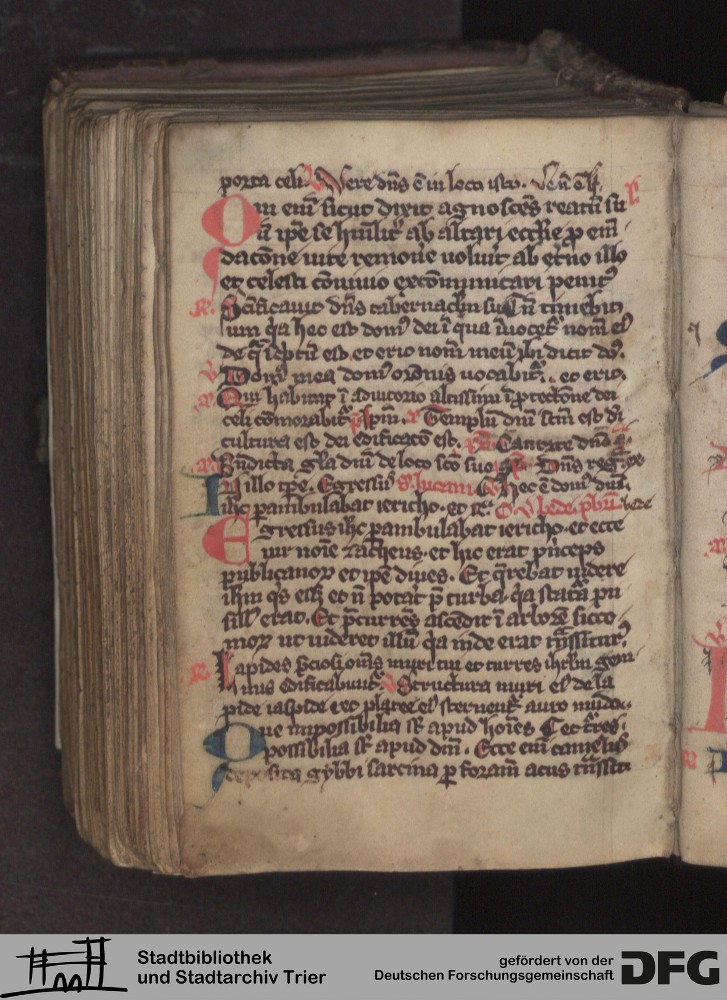 porta celi. V Vere dns e in loco isto.
Qui eni sicut dixit agnoscens reatu su
u ipe se humilit ab altari ecclie p em
dacone uite remoue uoluit ab et'no illo
et celesti co uiuio excomunicari penit'
R. Scificauit dns tabernaclm su
um qa hec est dom' dei i qua inuocet nom ei'
de q sc'ptu est. et erit nom meu ibi dicit dns.
V Dom' mea dom' oronis uocabit'. et erit.
Qui habitat i adiutorio altissimi i ptectone dei
celi comorabit' Templu dni scm est di
cultura est dei edificato est. Cantate dno
Bndicta gla dni de loco sco suo Dns reg
In illo tpe. Egressus s. lucam Hec e dom' dni
ihc pambulabat iericho. et re. bede pbri
Egressus ihc pambulabat iericho. et ecce
uir noie zacheus. et hic erat pinceps
publicanor et ipe diues. Et qrebat uidere
ihm qs eet et n potat p turba. qa statura pu
sill' erat. Et pcurres ascedit i arbore sicco
mor ut uideret illu qa inde erat tnssitur'.
R Lapides pciosi oms muri tui et turres ihrlm gem
mis edificabunt'. V Structura muri ei' de la
pide iaspide et platee ei' sternent' auro mudo.
Que impossibilia st apud hoies
possibilia st apud dm. Ecce eni camelus
deposita gybbi sarcina p foram acus tnssit
Stadtbibliothek
und Stadtarchiv Trier
gefördert von der
Deutschen Forschungsgemeinschaft
DFG